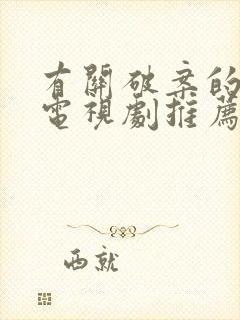 有關破案的
電視劇推薦
西就